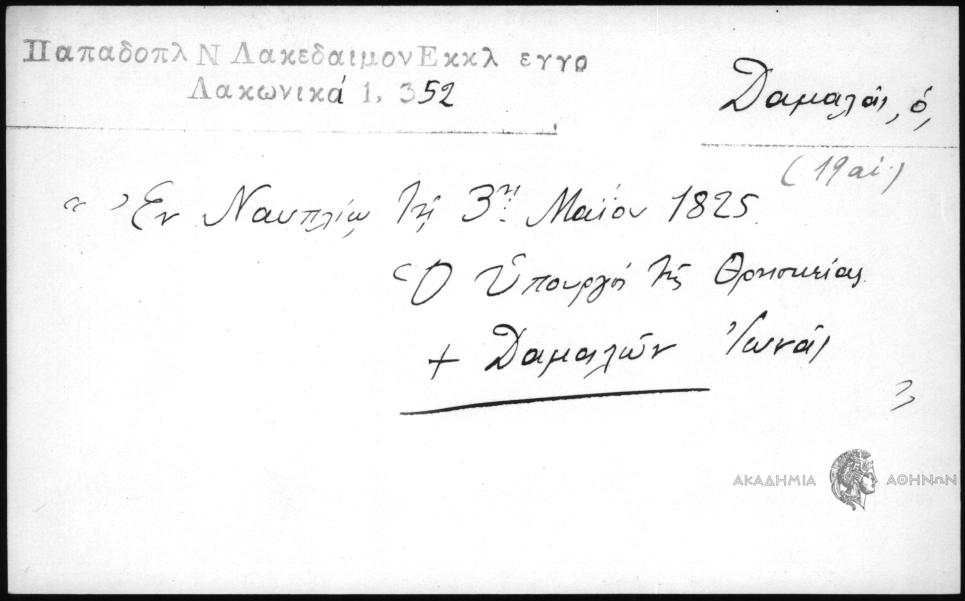 Παπαδοπλ Ν Λακεδαιμον Εκκλ εγγρ
Λακωνικά 1, 352
Δαμαλᾶς, ὁ,
(19 αἰ.)
« Ἐν Ναυπλίῳ τῇ 3ῃ Μαΐου 1825.
Ὁ Ὑπουργός τῆς Θρησκείας
+ Δαμαλῶν Ἰωνᾶς
»
ΑΚΑΔΗΜΙΑ ΑΘΗΝΩΝ